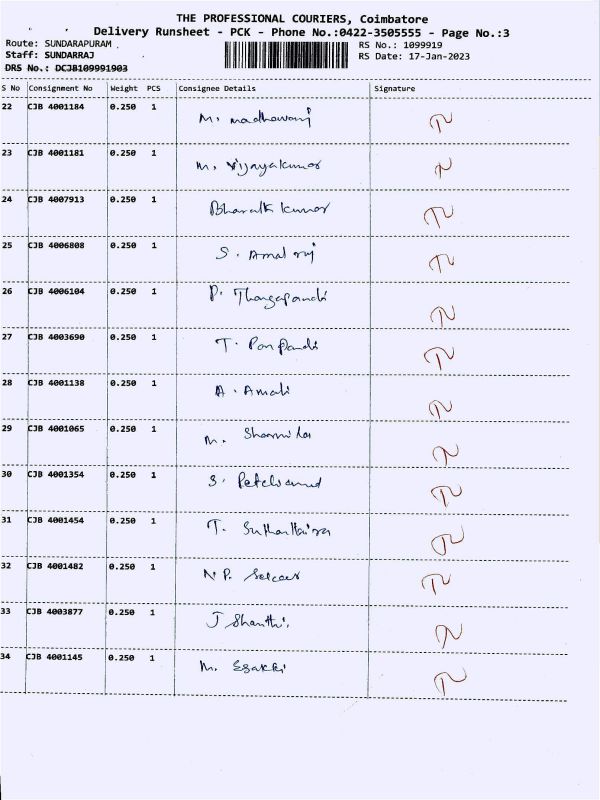 THE PROFESSIONAL COURIERS, Coimbatore
Delivery Runsheet - PCK - Phone No.:0422-3505555 - Page No.:3
Route: SUNDARAPURAM RS No.: 1099919
Staff: SUNDARRAJ RS Date: 17-Jan-2023
DRS No.: DCJB109991903
S No Consignment No Weight PCS Consignee Details Signature
22 CJB 4001184 0.250 1 M. madhavanj
23 CJB 4001181 0.250 1 M. Vijayakumar
24 CJB 4007913 0.250 1 Bharath kumar
25 CJB 4006808 0.250 1 S. Amal raj
26 CJB 4006104 0.250 1 P. Thangapandi
27 CJB 4003690 0.250 1 T. Ponpandi
28 CJB 4001138 0.250 1 A. Amali
29 CJB 4001065 0.250 1 M. Sharmila
30 CJB 4001354 0.250 1 S.
31 CJB 4001454 0.250 1 T.
32 CJB 4001482 0.250 1 N.P.
33 CJB 4003877 0.250 1 J Shanthi.
34 CJB 4001145 0.250 1 M. Esakki